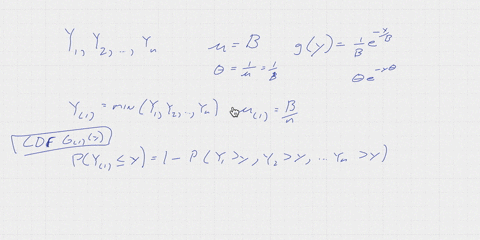 Y₁, Y₂, .., Yₙ μ = B g(y) = 1/B e^(-y/B)
θ = 1/μ = 1/B θe^(-yθ)
Y₍₁₎ = min (Y₁, Y₂, .., Yₙ) μ₍₁₎ = B/n
CDF G₍₁₎(y)
P(Y₍₁₎ ≤ y) = 1 - P(Y₁ > y, Y₂ > y, ... Yₙ > y)